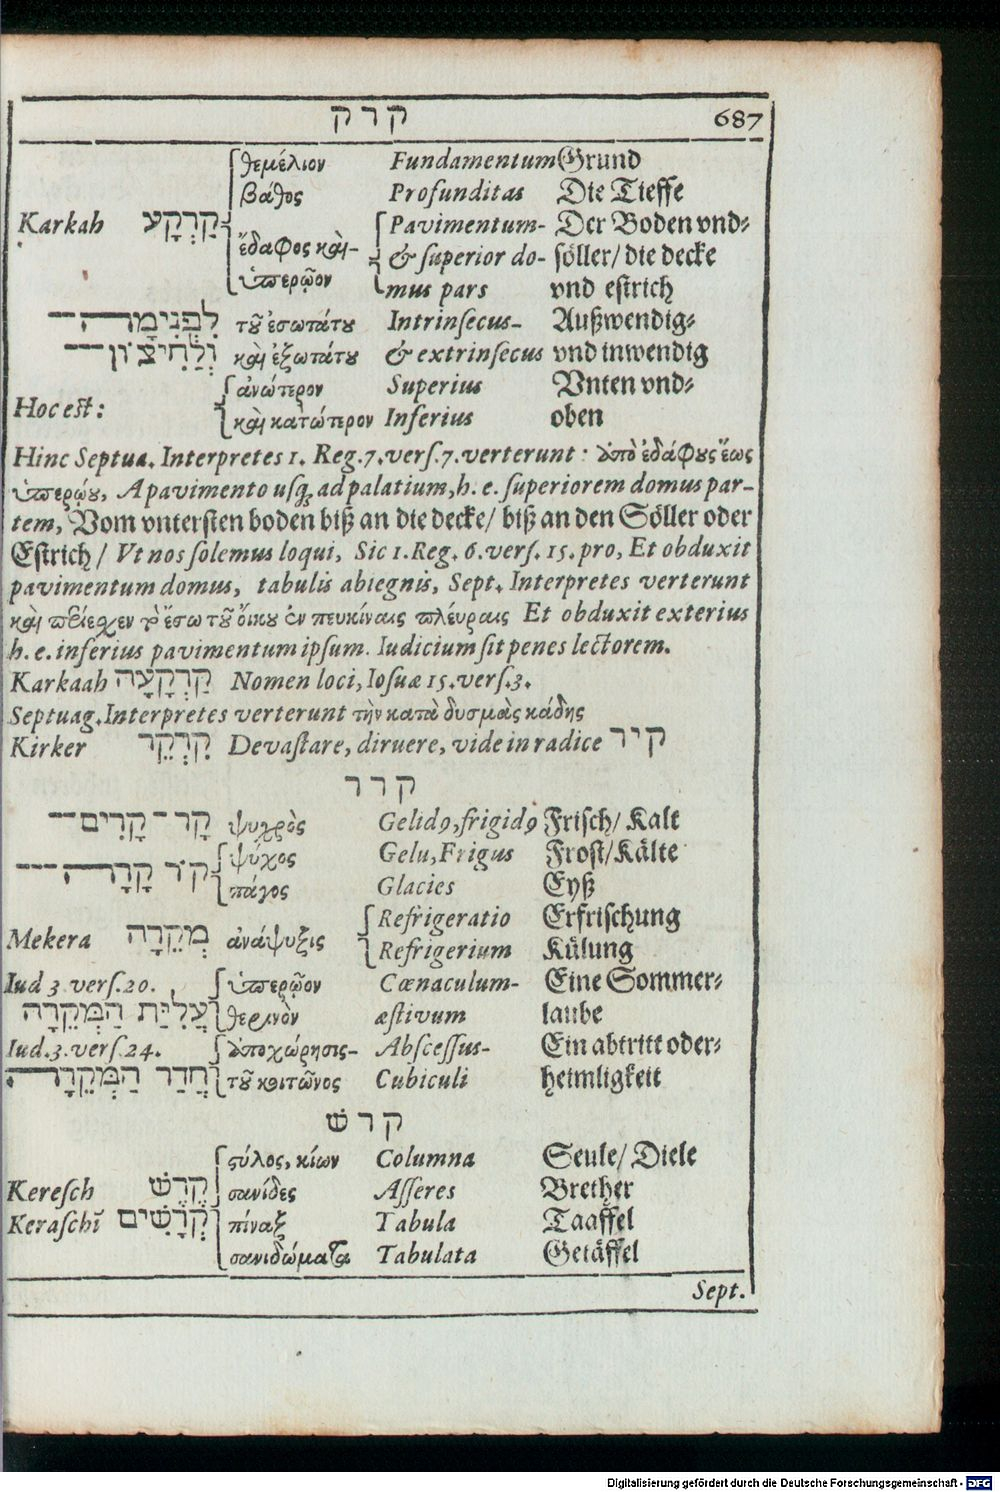 קרק 687
θεμέλιον Fundamentum Grund
βάθος Profunditas Die Tieffe
Karkah קַרְקָע Pavimentum- Der Boden vnd-
ἔδαφος καὶ- & superior do- söller/ die decke
ὑπερῷον mus pars vnd estrich
לִפְנִימָה-- τοῦ ἐσωτάτου Intrinsecus- Außwendig-
וְלַחִיצוֹן--- καὶ ἐξωτάτου & extrinsecus vnd inwendig
ἀνώτερον Superius Vnten vnd-
Hoc est: καὶ κατώτερον Inferius oben
Hinc Septua. Interpretes 1. Reg. 7. vers. 7. verterunt: ἀπὸ ἐδάφους ἕως
ὑπερῴου, A pavimento usq; ad palatium, h. e. superiorem domus par-
tem, Vom vntersten boden biß an die decke/ biß an den Söller oder
Estrich/ Vt nos solemus loqui, Sic 1. Reg. 6. vers. 15. pro, Et obduxit
pavimentum domus, tabulis abiegnis, Sept. Interpretes verterunt
καὶ περιέσχεν τὸ ἔσω τοῦ οἴκου ἐν πευκίναις πλέυραις Et obduxit exterius
h. e. inferius pavimentum ipsum. Iudicium sit penes lectorem.
Karkaah קַרְקָעָה Nomen loci, Iosuæ 15. vers. 3.
Septuag. Interpretes verterunt τὴν κατὰ δυσμὰς κάδης
Kirker קִרְקֵר Devastare, diruere, vide in radice קיר
קרר
קָר - קָרִים-- ψυχρὸς Gelidꝰ, frigidꝰ Frisch/ Kalt
ψύχος Gelu, Frigus Frost/ Kälte
קוֹר קָרָה--- πάγος Glacies Eyß
Refrigeratio Erfrischung
Mekera מְקֵרָה ἀνάψυξις Refrigerium Külung
Iud. 3 vers. 20. ὑπερῷον Cœnaculum- Eine Sommer-
עֲלִיַּת הַמְּקֵרָה θερινὸν æstivum laube
Iud. 3. vers. 24. ἀποχώρησις- Abscessus- Ein abtritt oder-
חֲדַר הַמְּקֵרָה τοῦ κοιτῶνος Cubiculi heimligkeit
קרשׁ
ϛύλος, κίων Columna Seule/ Diele
Keresch קֶרֶשׁ σανίδες Asseres Brether
Keraschĩ קְרָשִׁים πίναξ Tabula Taaffel
σανιδώματα Tabulata Getäffel
Sept.
Digitalisierung gefördert durch die Deutsche Forschungsgemeinschaft - DFG